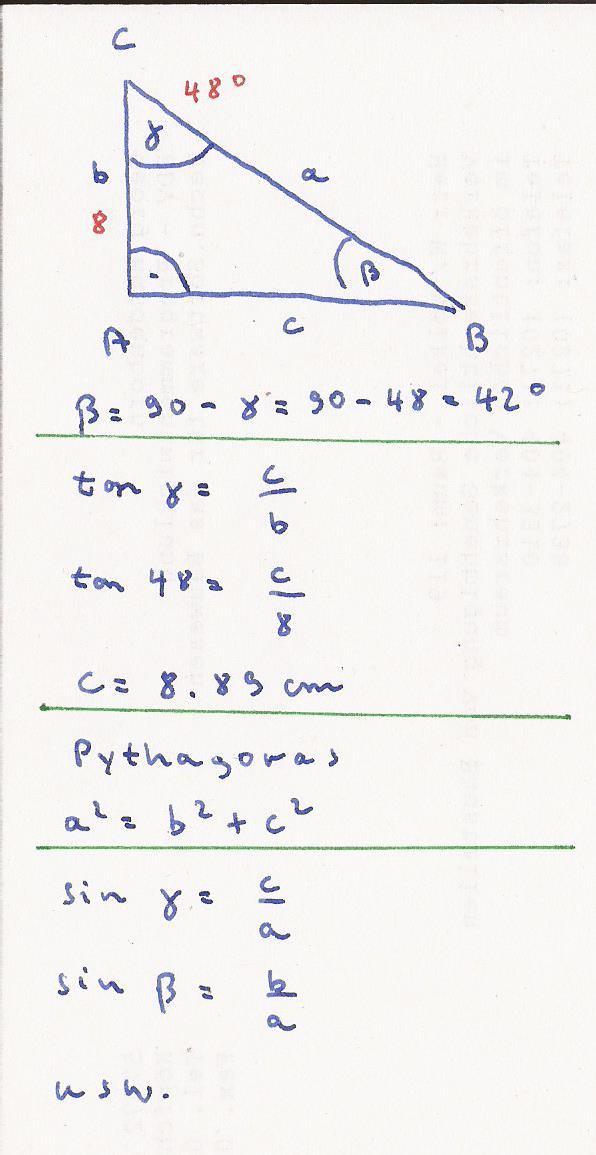 C
48°
γ
b
a
8
β
c
A
B
β = 90 - γ = 90 - 48 = 42°
tan γ = c/b
tan 48 = c/8
c = 8.89 cm
Pythagoras
a² = b² + c²
sin γ = c/a
sin β = b/a
usw.